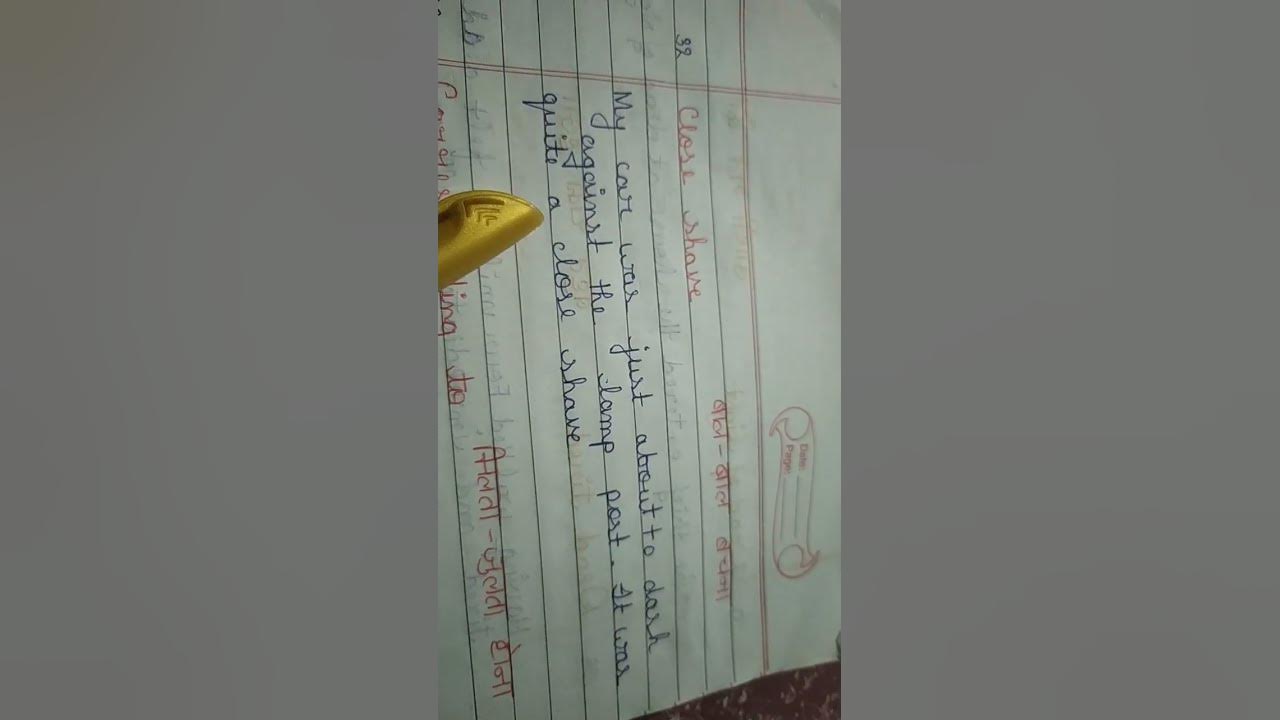 Date:
Page:
बाल-बाल बचना
32 Close shave
My car was just about to dash
against the lamp post. It was
quite a close shave
मिलता-जुलता होना
ding to